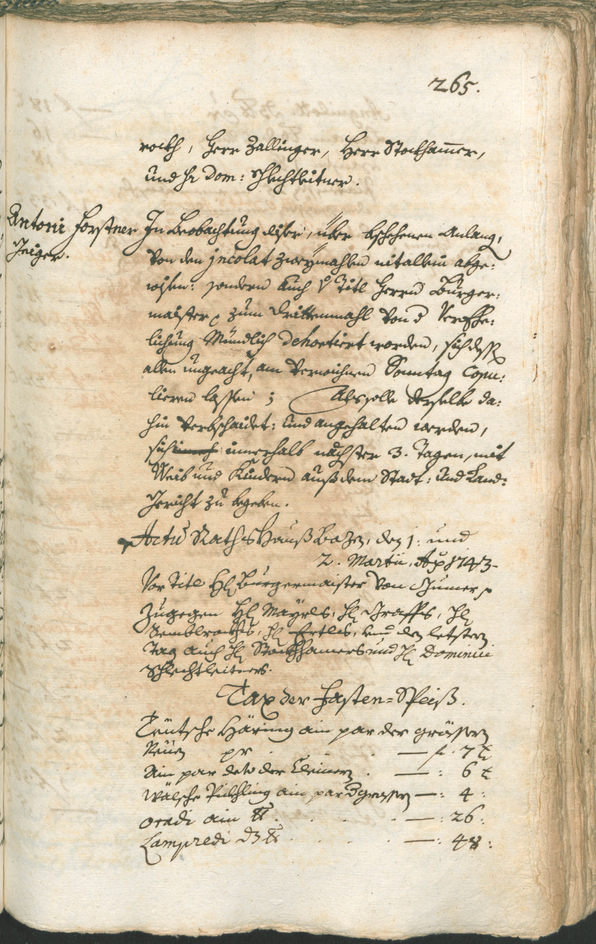 265.
roth, Herr Zallinger, Herr Stockhammer,
und H: Dom: Schlechtleitner.
Antoni Forstner
In Beobachtung diser, über beschehenen Anlang,
von den Incolat zweymahlen nit allein abge:
wisen: sondern auch Titl Herrn Burger:
maister zum drittenmahl von Verehe:
lichung Mündlich dehortiert worden, sich dess
allen ungeacht, am verwichnen Sonntag Copu:
lieren lassen; Als solle derselbe da:
hin verbschaidet: und angehalten werden,
sich innerhalb nechster 3. Tagen, mit
Weib und Kindern auß dem Statt: und Land:
Gericht zu begeben.
Actū Rathshauß Bozen, den 1: und
2. Martii, Aō 1743.
Vor Titl H: Burgermaister von
Zugegen H: Mayrls, H: Graffs, H:
H: Ertles, und den letsten
Tag auch H: Stockhamers und H: Dominici
Schlechtleitners.
Tax der Fasten-Speiß.
Teutsche Häring ain par der grössern
Neuen pr . — f. 7 x
Ain par deto der Kleinern . —: 6 x
Wälsche Pichling ain par d grossen —: 4 :
Oradi ain ℔ . . . —: 26 :
Lampredi dz ℔ . . . —: 48 :